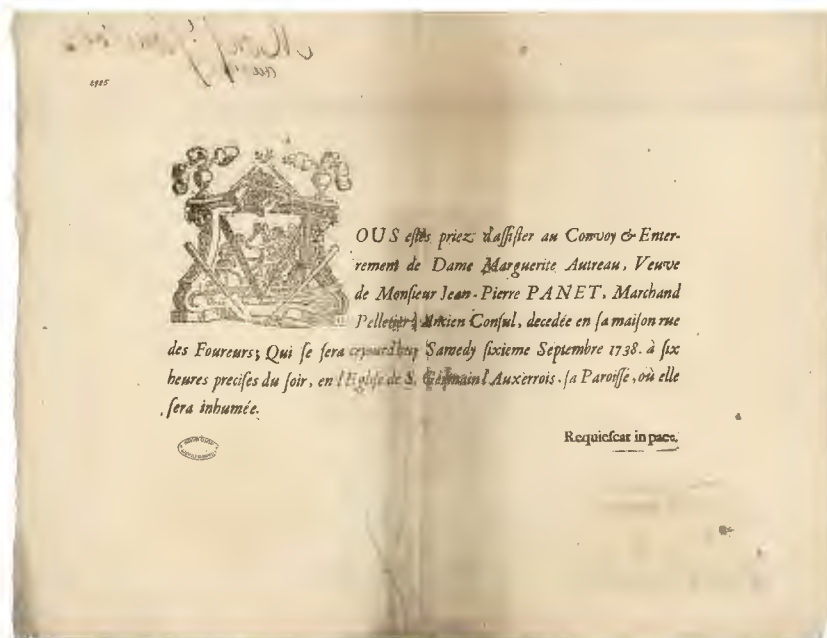 2925
OUS eſtes priez d'aſſiſter au Convoy & Enter-
rement de Dame Marguerite Autreau, Veuve
de Monſieur Jean-Pierre PANET, Marchand
Pelletier & Ancien Conſul, decedée en ſa maiſon rue
des Foureurs; Qui ſe ſera cejourd'huy Samedy ſixieme Septembre 1738. à ſix
heures preciſes du ſoir, en l'Egliſe de S. Germain l'Auxerrois, ſa Paroiſſe, où elle
ſera inhumée.
Requieſcat in pace.